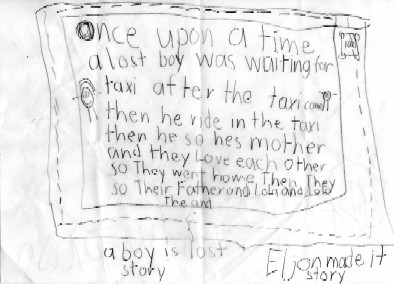 Once upon a time
a lost boy was waiting for
taxi after the taxi came
then he ride in the taxi
then he so hes mother
and they Love each other
so They went howe Then They
so Their Father and Lola and Lolo
The end
a boy is lost
story
Eljon made it
story